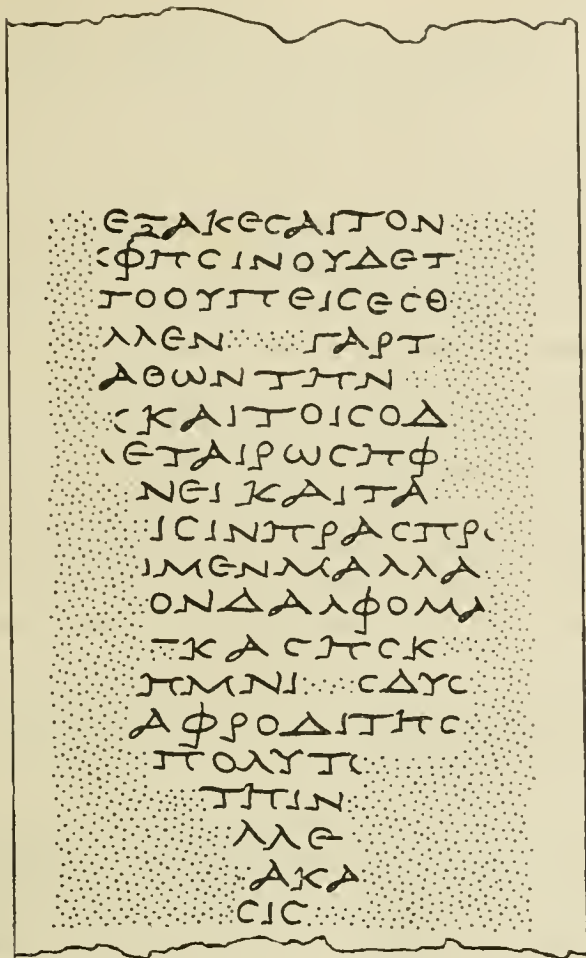 ΕΞΑΚΕϹΑΙΤΟΝ
ϹΦΗϹΙΝΟΥΔΕΤ
ΤΟΟΥΠΕΙϹΕϹΘ
ΛΛΕΝ ΓΑΡΤ
ΑΘΩΝΤΗΝ
ϹΚΑΙΤΟΙϹΟΔ
ΕΤΑΙΡΩϹΗΦ
ΝΕΙΚΑΙΤΑ
ΙϹΙΝΗΡΑϹΗΡ
ΙΜΕΝΜΑΛΛΑ
ΟΝΔΑΛΦΟΜΑ
ΚΑϹΗϹΚ
ΗΜΝΙ ϹΔΥϹ
ΑΦΡΟΔΙΤΗϹ
ΠΟΛΥΤ
ΤΗΙΝ
ΛΛΕ
ΑΚΑ
ϹΙϹ